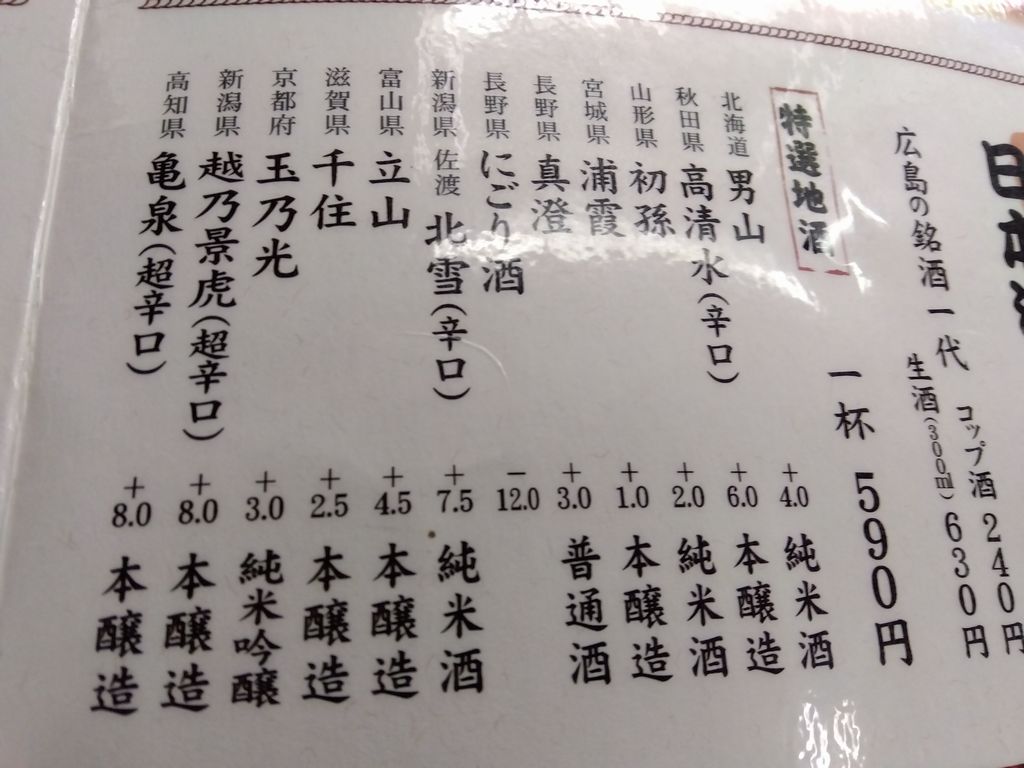 日本
コップ酒 240円
広島の銘酒 一代 生酒(300ml) 630円
特選地酒 一杯 590円
北海道 男山 +4.0 純米酒
秋田県 高清水(辛口) +6.0 本醸造
山形県 初孫 +2.0 純米酒
宮城県 浦霞 +1.0 本醸造
長野県 真澄 +3.0 普通酒
長野県 にごり酒 −12.0
新潟県 佐渡 北雪(辛口) +7.5 純米酒
富山県 立山 +4.5 本醸造
滋賀県 千住 +2.5 本醸造
京都府 玉乃光 +3.0 純米吟醸
新潟県 越乃景虎(超辛口) +8.0 本醸造
高知県 亀泉(超辛口) +8.0 本醸造